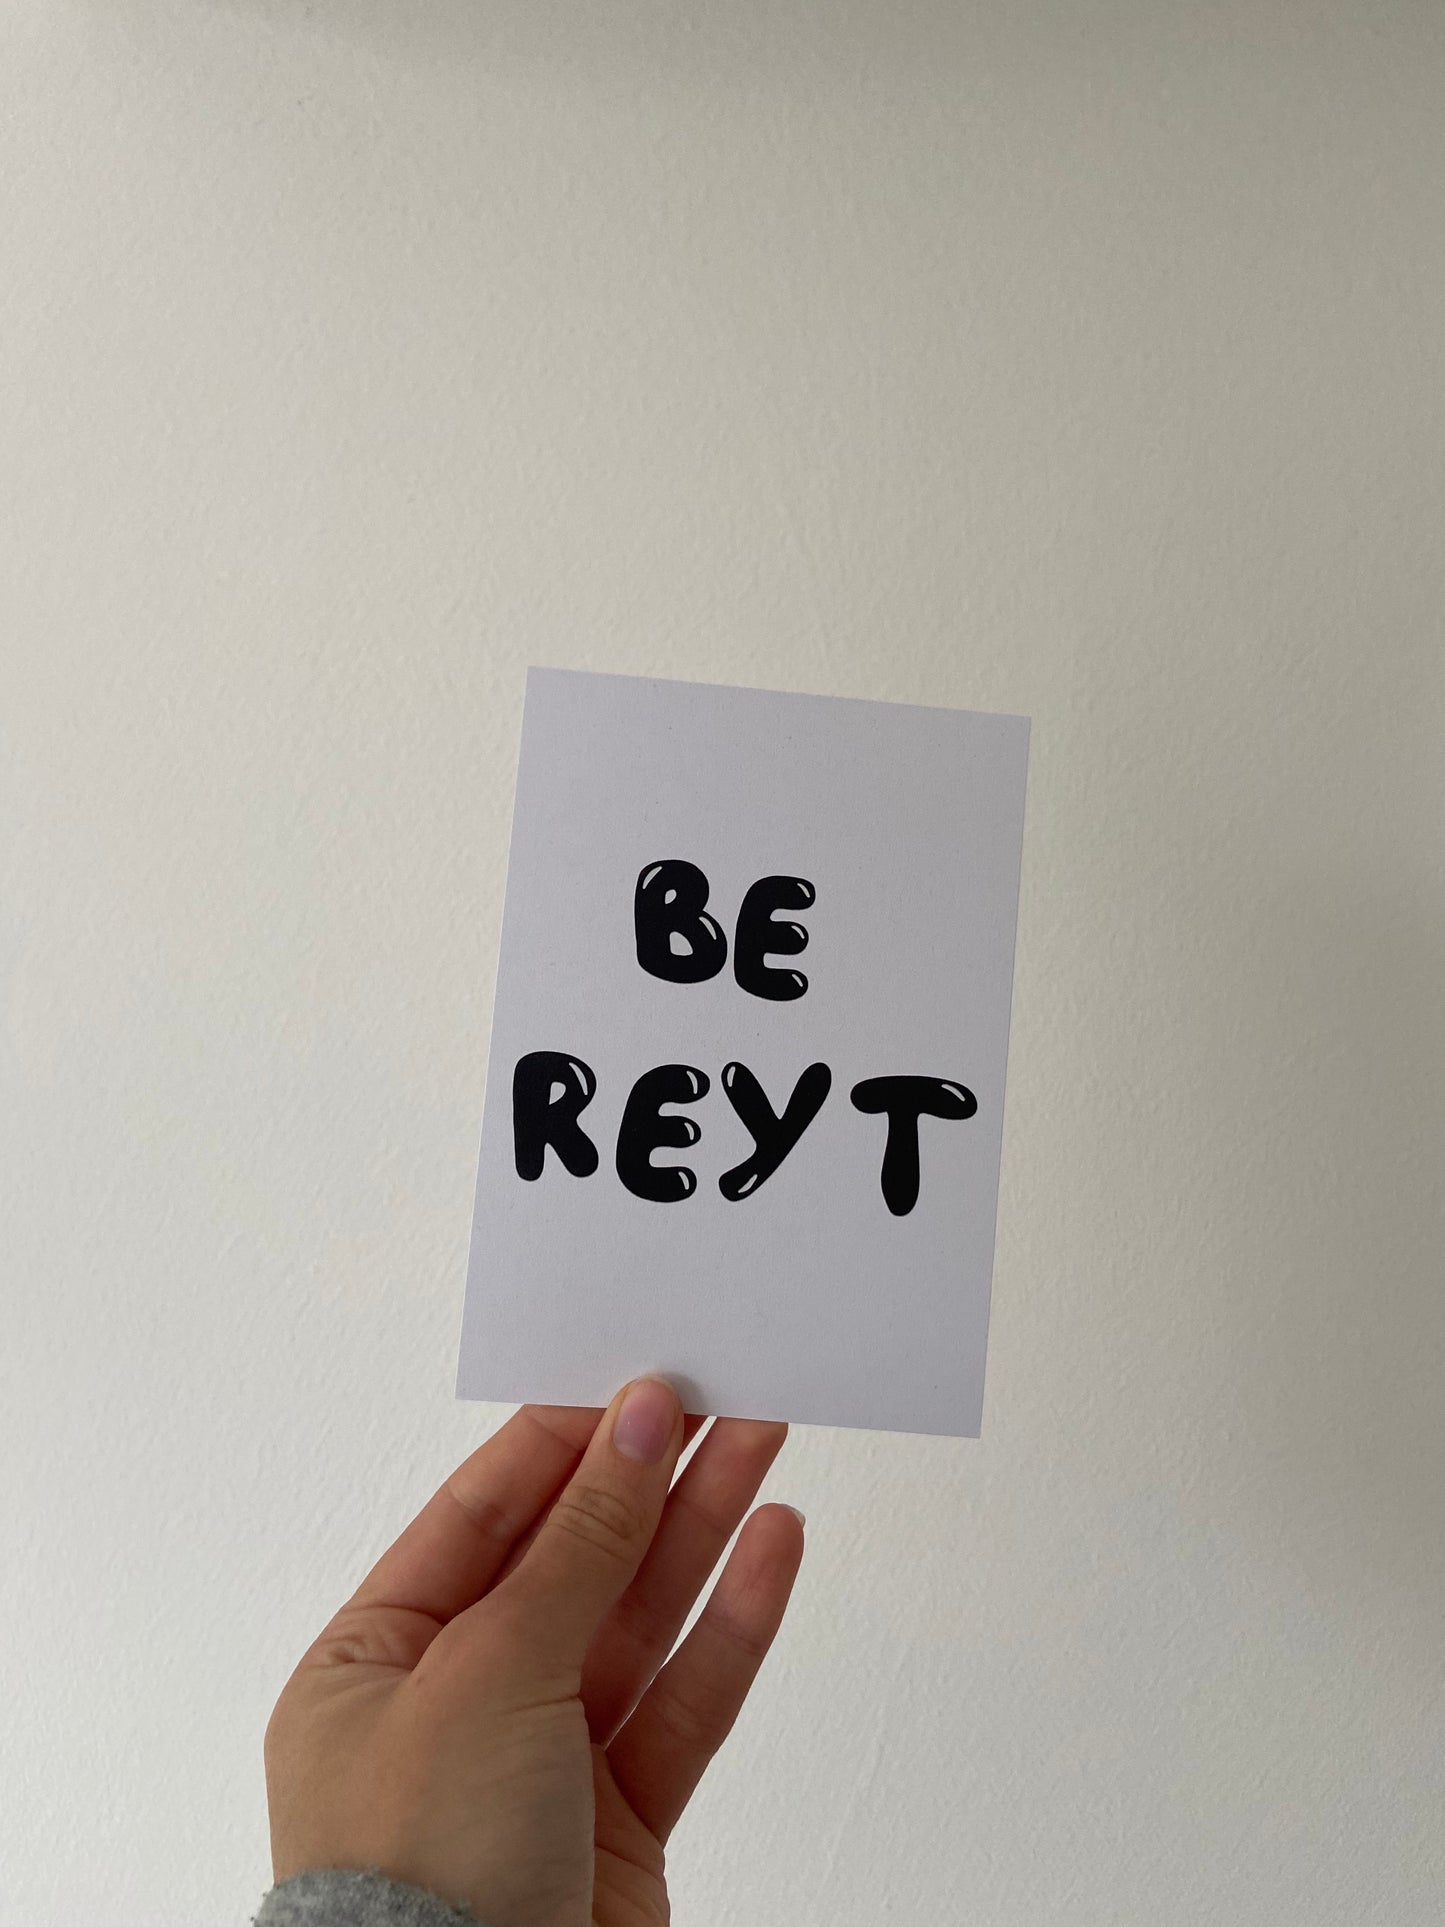 BE
REYT